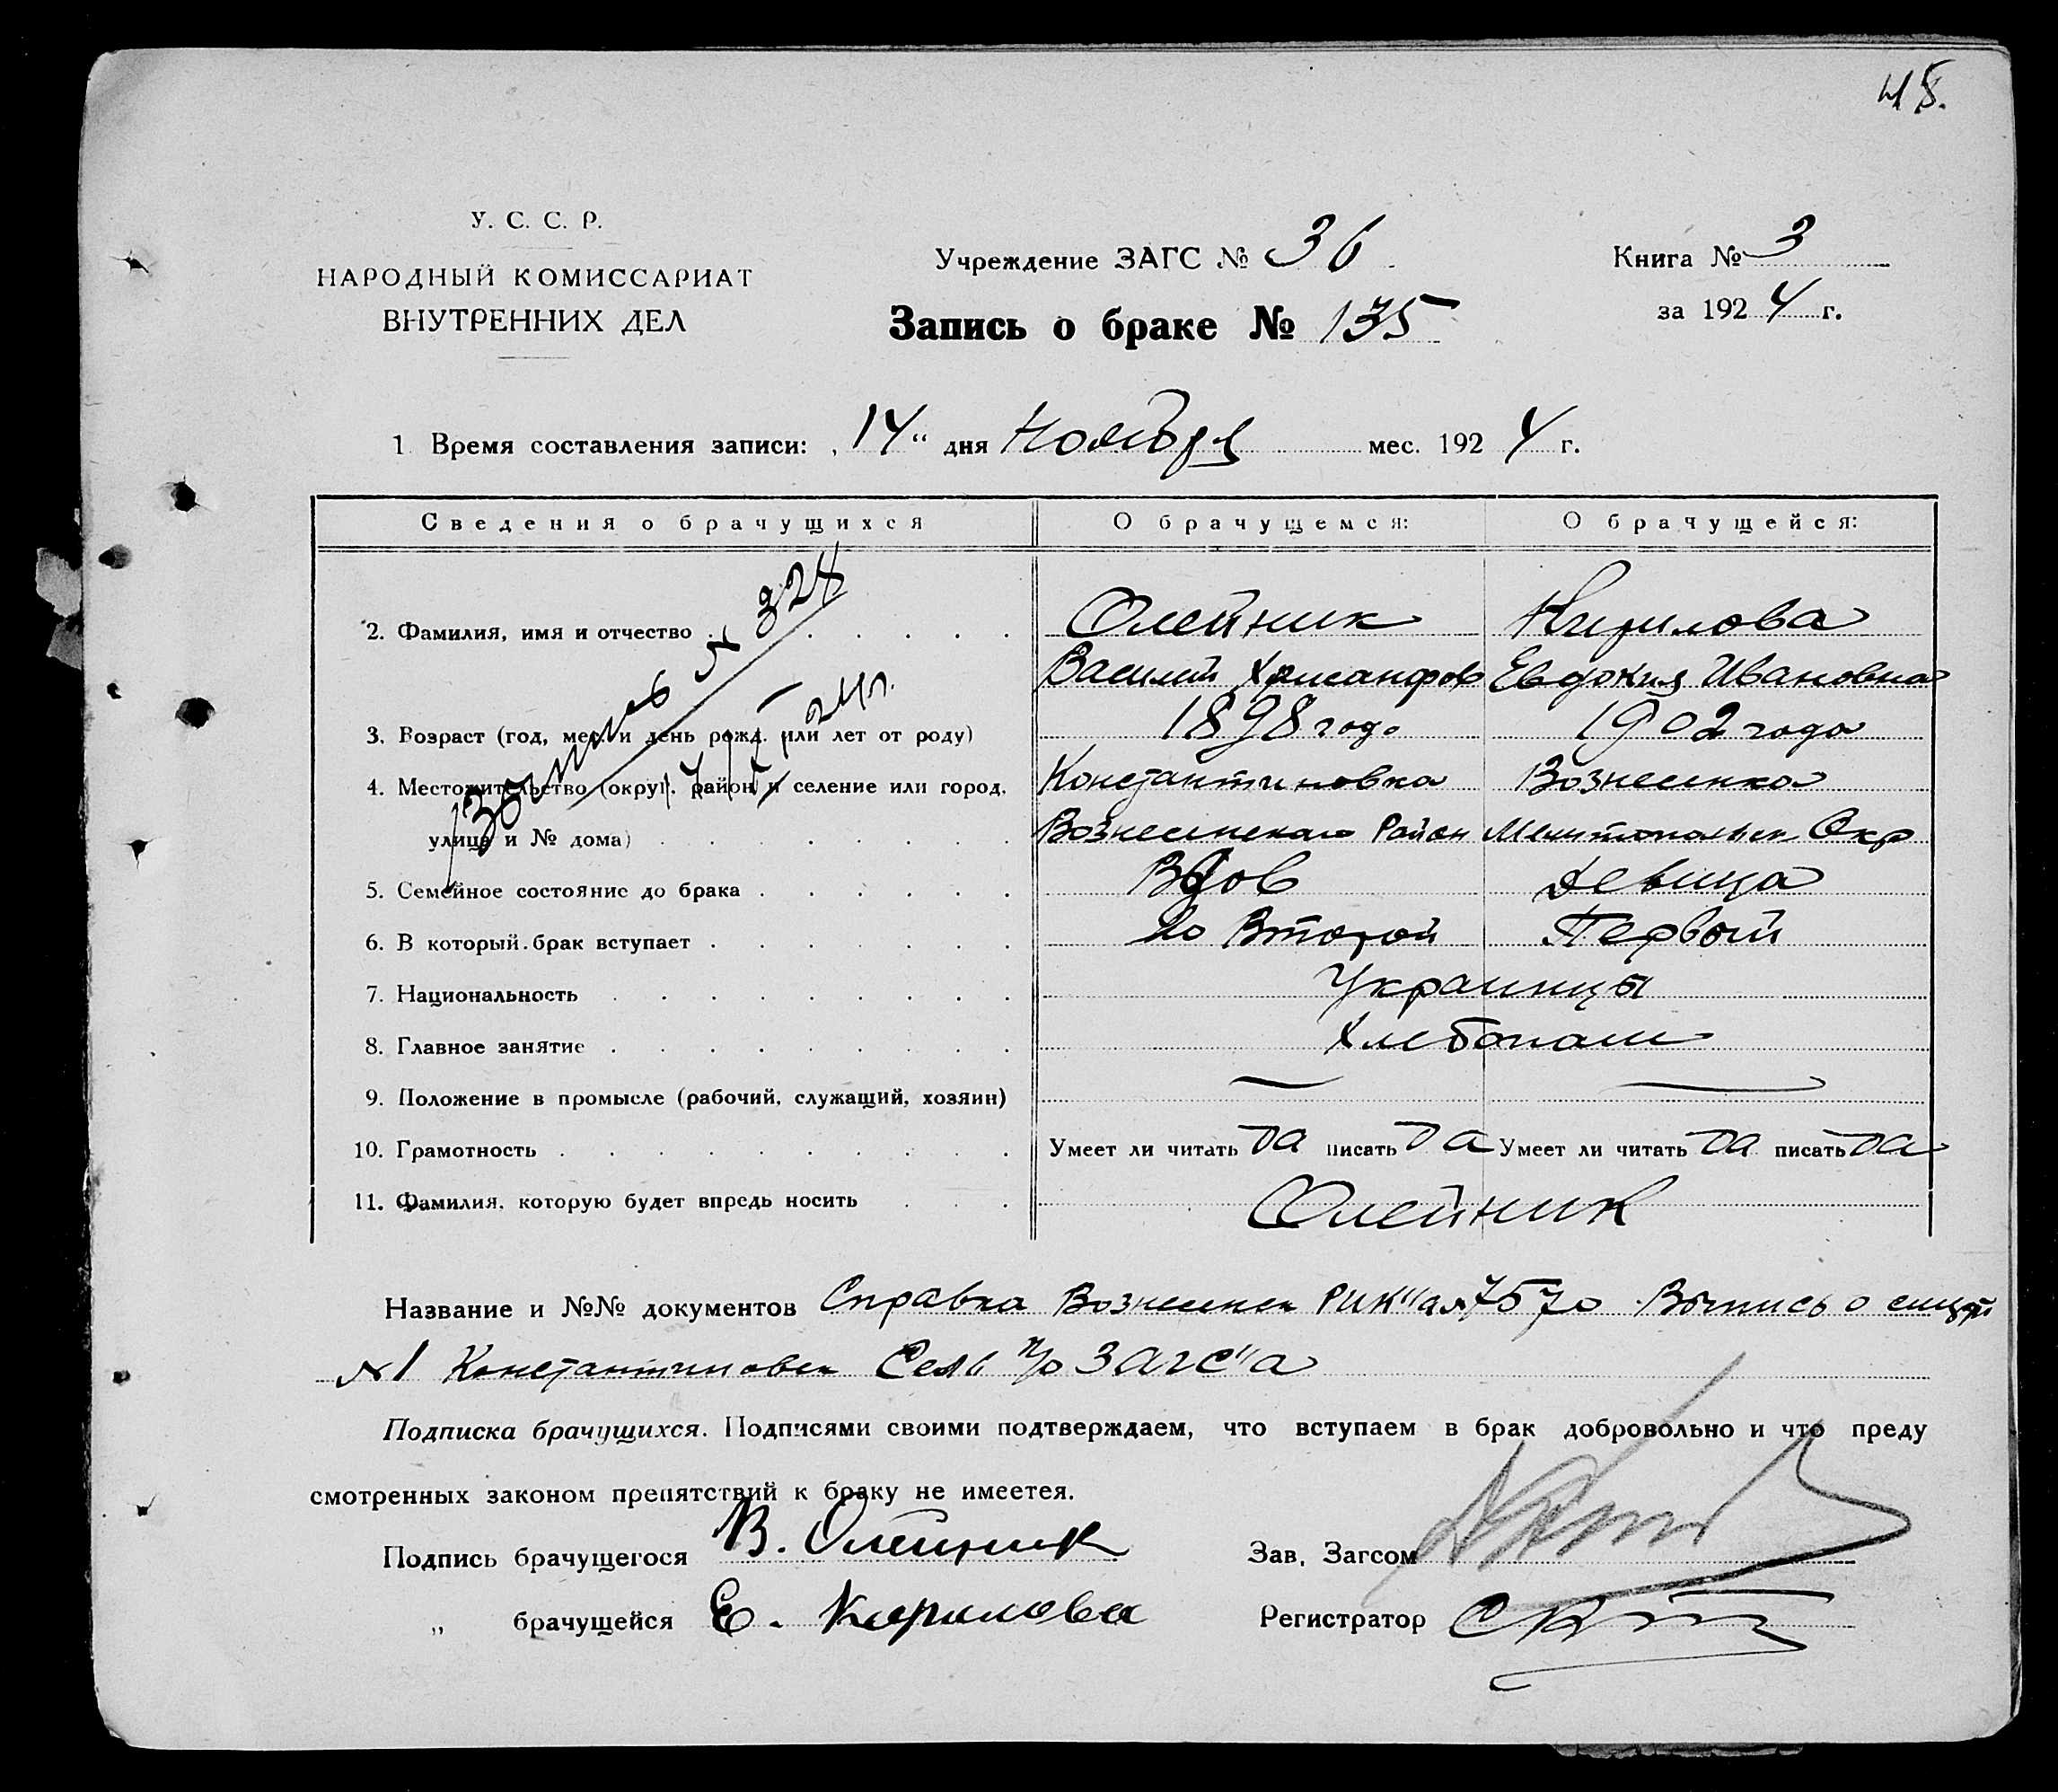 45.
У. С. С. Р.
НАРОДНЫЙ КОМИССАРИАТ
ВНУТРЕННИХ ДЕЛ
Учреждение ЗАГС № 36
Книга № 3
Запись о браке № 135
за 1924 г.
1. Время составления записи: „14“ дня Ноября мес. 1924 г.
Сведения о брачущихся О брачущемся: О брачущейся:
2. Фамилия, имя и отчество Олейник Кирилова
Василий Хрисанфов Евдокия Ивановна
3. Возраст (год, мес. и день рожд. или лет от роду) 1898 года 1902 года
4. Местожительство (округ, район и селение или город, Константиновка Вознесенка
улица и № дома) Вознесенского Район Мелитопольск Окр
5. Семейное состояние до брака Вдов Девица
6. В который брак вступает Во Второй Первый
7. Национальность Украинцы
8. Главное занятие Хлебопаш
9. Положение в промысле (рабочий, служащий, хозяин)
10. Грамотность Умеет ли читать да писать да Умеет ли читать да писать да
11. Фамилия, которую будет впредь носить Олейник
№ 324
24г.
Название и №№ документов Справка Вознесенск РИК"а 7570 Выпись о
№1 Константиновск Сель п/о ЗАГС"а
Подписка брачущихся. Подписями своими подтверждаем, что вступаем в брак добровольно и что преду
смотренных законом препятствий к браку не имеетея.
Подпись брачущегося В. Олейник Зав. Загсом
„ брачущейся Е. Кирилова Регистратор